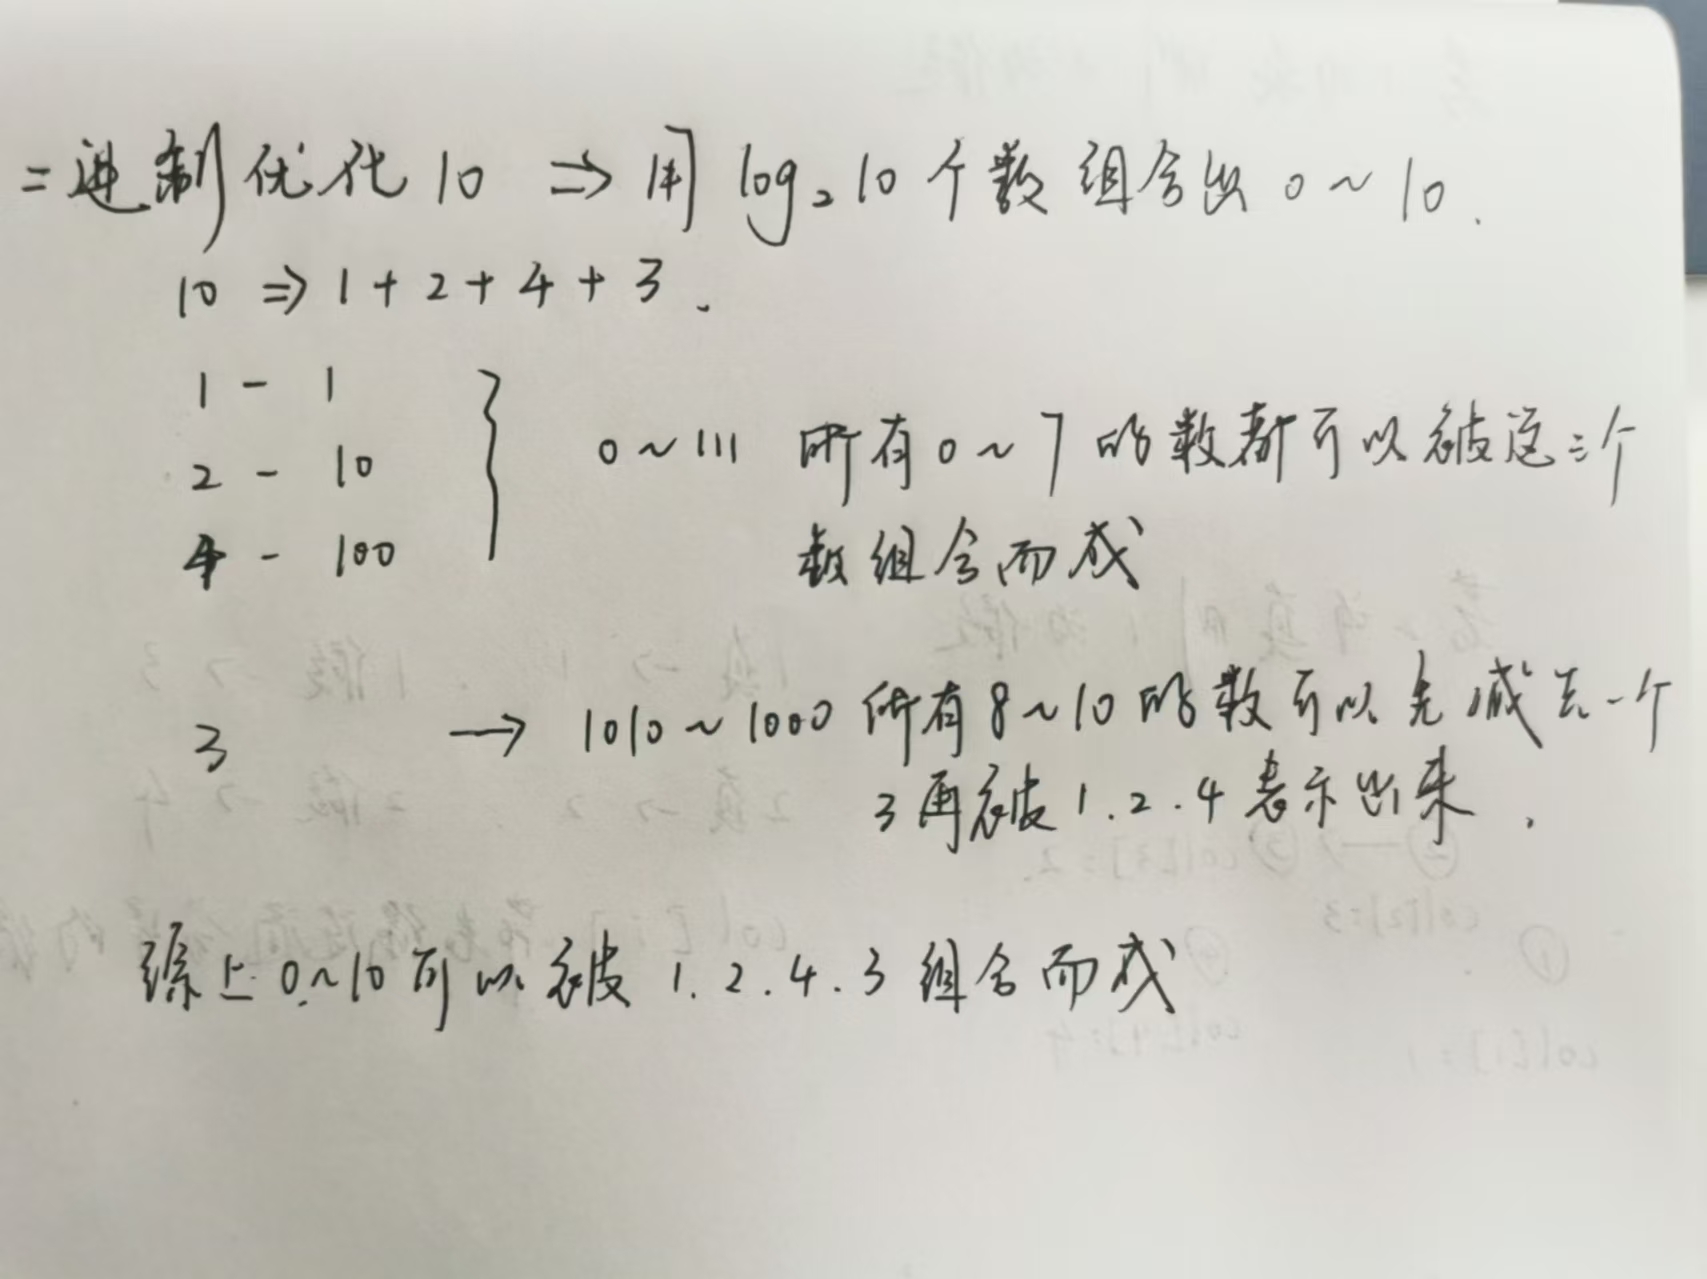 二进制优化10 ⇒ 用 log₂10个数组合出0~10.
10 ⇒ 1+2+4+3.
1 - 1
2 - 10
4 - 100
0~111 所有0~7的数都可以被这三个
数组合而成
3 → 1010~1000 所有8~10的数可以先减去一个
3再被1.2.4表示出来.
综上0~10可以被1.2.4.3组合而成